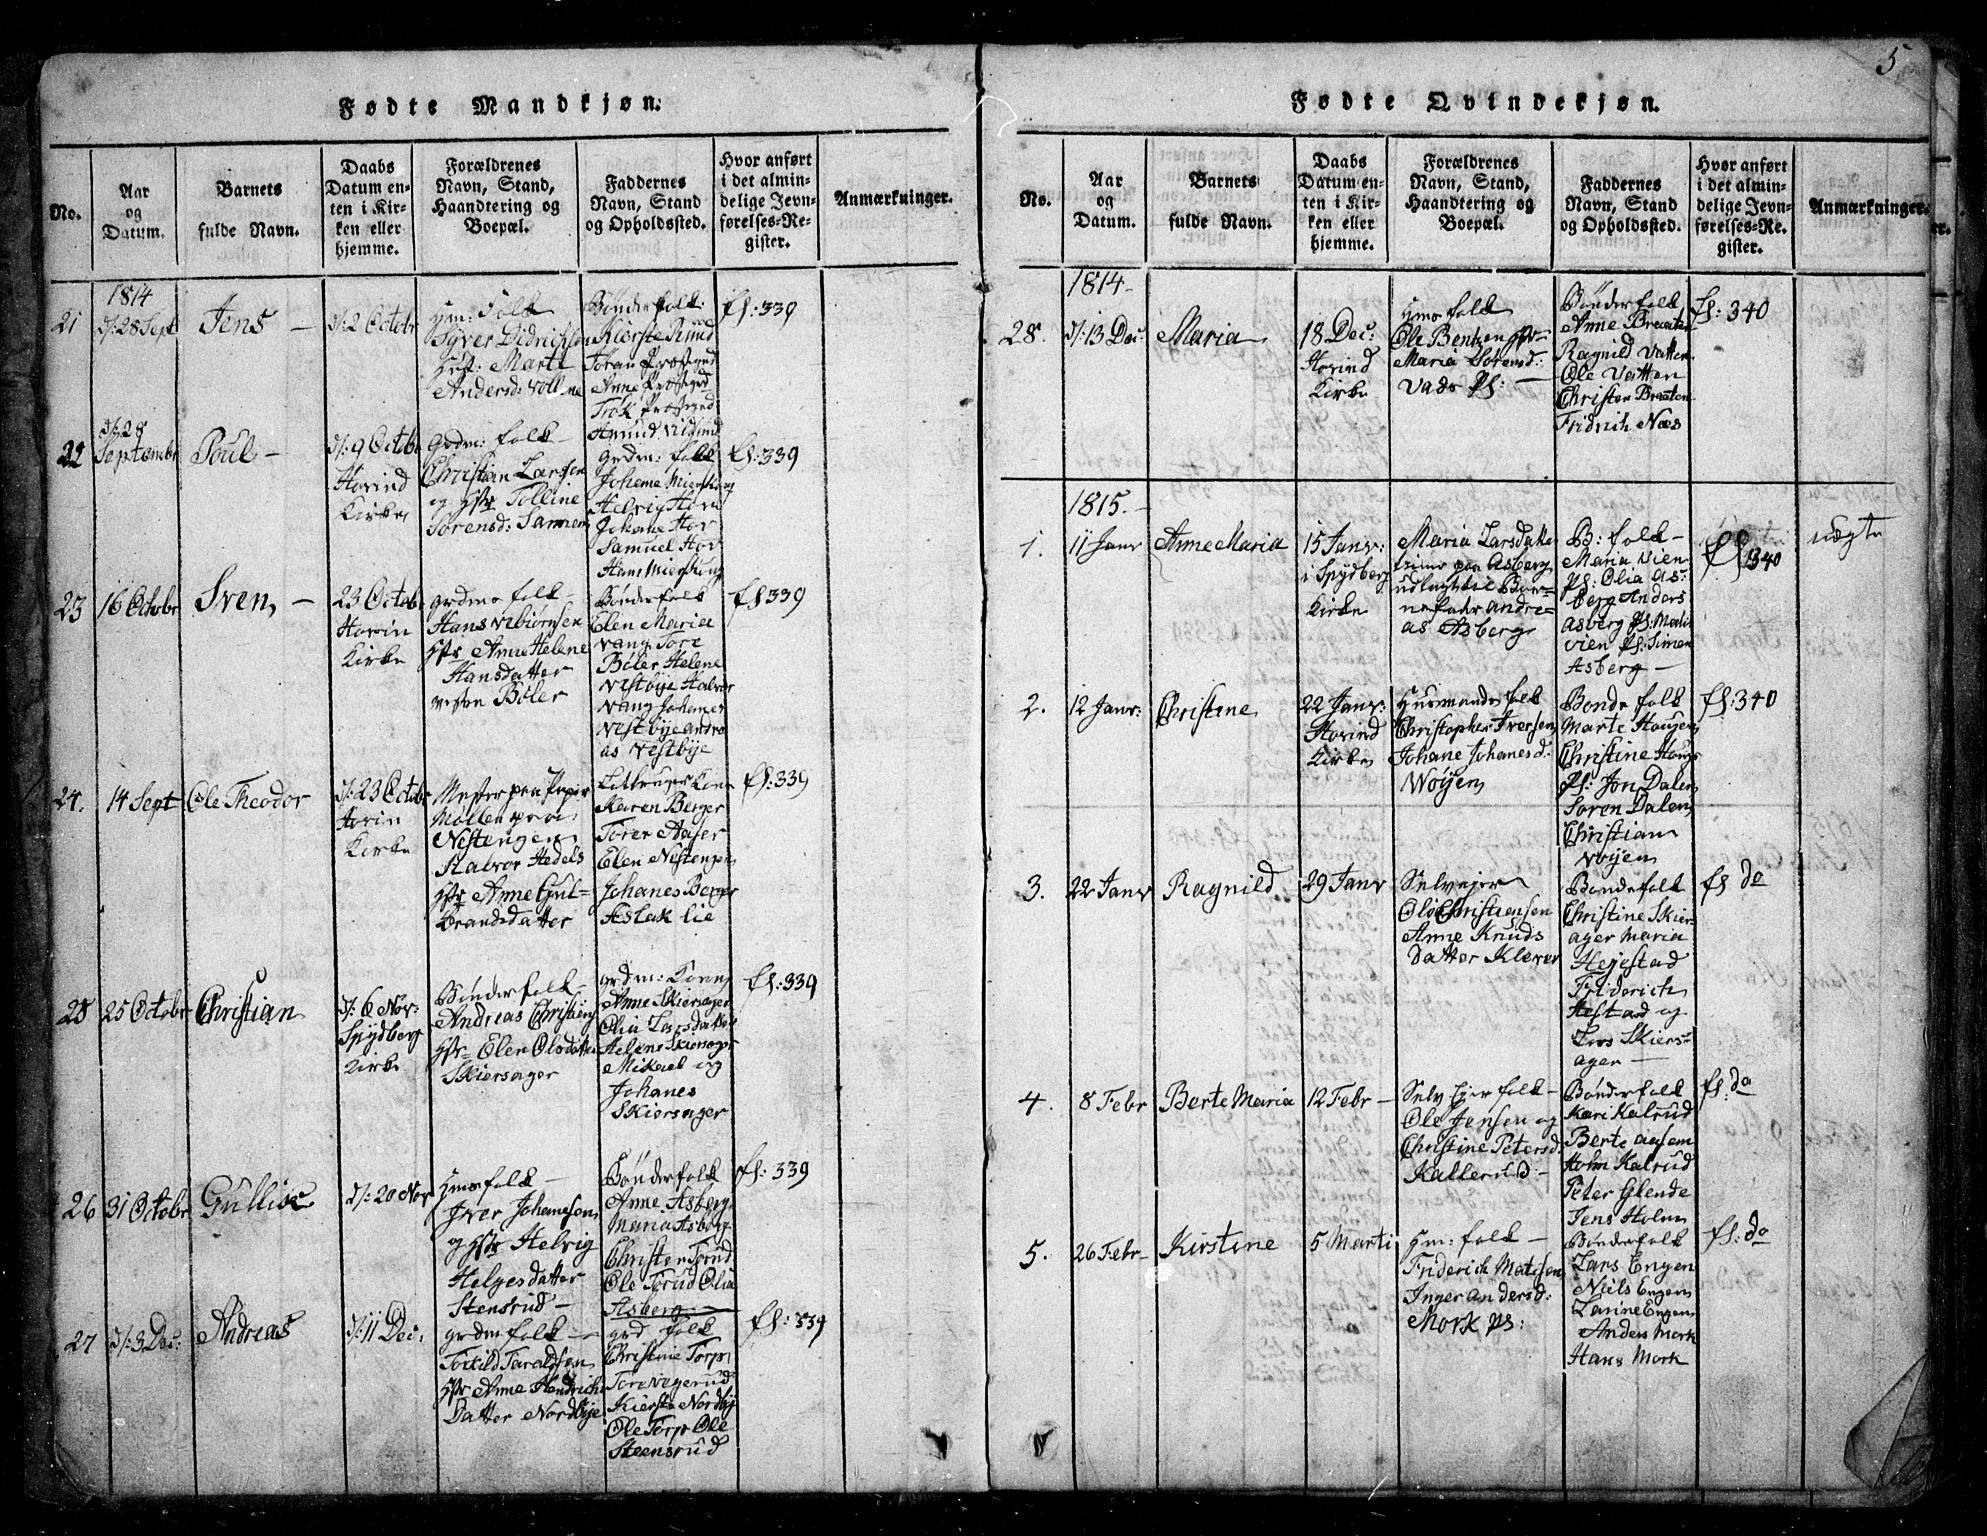 5
Fødte Mandkjøn.
No.
Aar
og
Datum.
Barnets
fulde Navn.
Daabs
Datum en-
ten i Kir-
ken eller
hjemme.
Forældrenes
Navn, Stand,
Haandtering og
Boepæl.
Faddernes
Navn, Stand
og Opholdssted.
Hvor anført
i det almin-
delige Jevn-
førelses-Re-
gister.
Anmærkninger.
1814
21
d/: 28 Sept
Jens –
d/: 2 Octobr
Hm: Folk
Syver Didrichsen
Hust: Marte
Andersd: Vollene
Bønderfolk:
Kierste Ruud
Joran Prestegrd
Anne Prestegrd
Trok Prestegrd
Amund
fl: 339
22
d/: 28
Septembr
Poul –
d/: 9 Octbr
Hovind
Kirke
Grdm: folk –
Christian Larsen
og Hstr Tolline
Sørensd: Sannem
Grdm: folk
Johanne Mienskoug
Helvig Hov
Johane Hov
Samuel Hov
Hans Mienskoug
fl: 339
23
16 Octobr
Sven –
23 Octobr
Hovin
Kirke
grdms folk –
Hans Vibiørnsen
Hstr Anne Helene
Hansdatter
vestre Bøler
Bønderfolk
Elen Maria
Vang Tore
Bøler Helene
Vestbye Halvor
Vang Johanes
Vestbye Andre
as Vestbye
fl 339
24.
14 Sept
Ole Theodor
d/: 23 Octobr
Hovin
Kirke
Mester paa Papir
Møllen paa
Nestengen
Halvor Hedels
Hstr Anne Gul=
brandsdatter
Karen Berger
Torer Aaser
Elen Nestengen
Johanes Berger
Aslak Lie
fl: 339
25
25 Octobr
Christian
d/: 6 Nov:
Spydberg
Kirke
Bønderfolk –
Andreas Christians
Hstr= Elen Olsdatter
Skiersager
grdm: Koner
Anne Skiersager
Olia Larsdatter
Helene Skiersager
Mikael og
Johanes
Skiersager
fl: 339
26
31 Octobr
Gullik
d/: 20 Nov
Hmsfolk –
Iver Johannesen
og Hstr Helvig
Helgesdatter
Stensrud –
Bønderfolk
Anne Asberg
Maria Asberg
Christen Torud
Ole Torud Olia
Asberg –
fl: 339
27
d/: 3 Dec:
Andreas
d/: 11 Dec:
grdmfolk –
Torkild Taraldsen
Hstr Anne Hendrichs
Datter Nordbye
grd folk
Christine Torp
Tore Vagerud
Kierste Nordby
Ole Torp Ole
Steensrud
fl: 339
Fødte Qvindekjøn.
No.
Aar
og
Datum.
Barnets
fulde Navn.
Daabs
Datum en-
ten i Kir-
ken eller
hjemme.
Forældrenes
Navn, Stand,
Haandtering og
Boepæl.
Faddernes
Navn, Stand
og Opholdssted.
Hvor anført
i det almin-
delige Jevn-
førelses-Re-
gister.
Anmærkninger.
1814 –
28.
d/: 13 Dec
Maria
18 Dec:
Hovind
Kirke
Hms folk
Ole Bentzen Hstr –
Maria Sørensd:
Vads Pl: –
Bønderfolk
Anne Braaten
Ragnild Vatten
Ole Vatten
Christen Braaten
Fridrich Næs
fl: 340
1815. –
1.
11 Janv
Anne Maria
15 Janv:
i Spydberg
Kirke
Maria Larsdatter
tiener paa Asberg
udlagt til Bar-
nefader Andre=
as Asberg
B: folk –
Maria Vien
Pl: Olia As:
berg Anders
Asberg Pl: Madis
Vien Pl: Simen
Asberg –
fl 340
uægte
2.
12 Janv:
Christine
22 Janv:
Hovind
Kirke
Huusmandsfolk
Christopher Iversen
Johane Johanesd:
Woyen
Bondefolk
Marte Hougen
Christine Houg
Pl: Jon Dalen
Soren Dalen
Christian
Woyen
fl: 340
3.
22 Janv
Ragnild
29 Janv
Selvejer
Ole Christiensen
Anne Knuds
Datter Klever
Bondefolk
Christine Skiers-
ager Maria
Hejestad
Friderich
Hestad og
Lars Skiers=
ager –
fl do
4.
8 Febr
Berte Maria
12 Febr –
Selv Ejer folk –
Ole Jensen og
Christine Petersd:
Kallerud –
Bønderfolk
Kari Kalrud
Berte Aasen
Holm Kalrud
Peter Glende
Jens Holm
fl: do
5.
26 Febr –
Kirstine
5 Marti
Hm: folk –
Friderich Matisen
Inger Andersd:
Mork Pl:
Bønderfolk
Lars Engen
Niils Engen
Larine Engen
Anders Mork
Hans Mork
fl: do